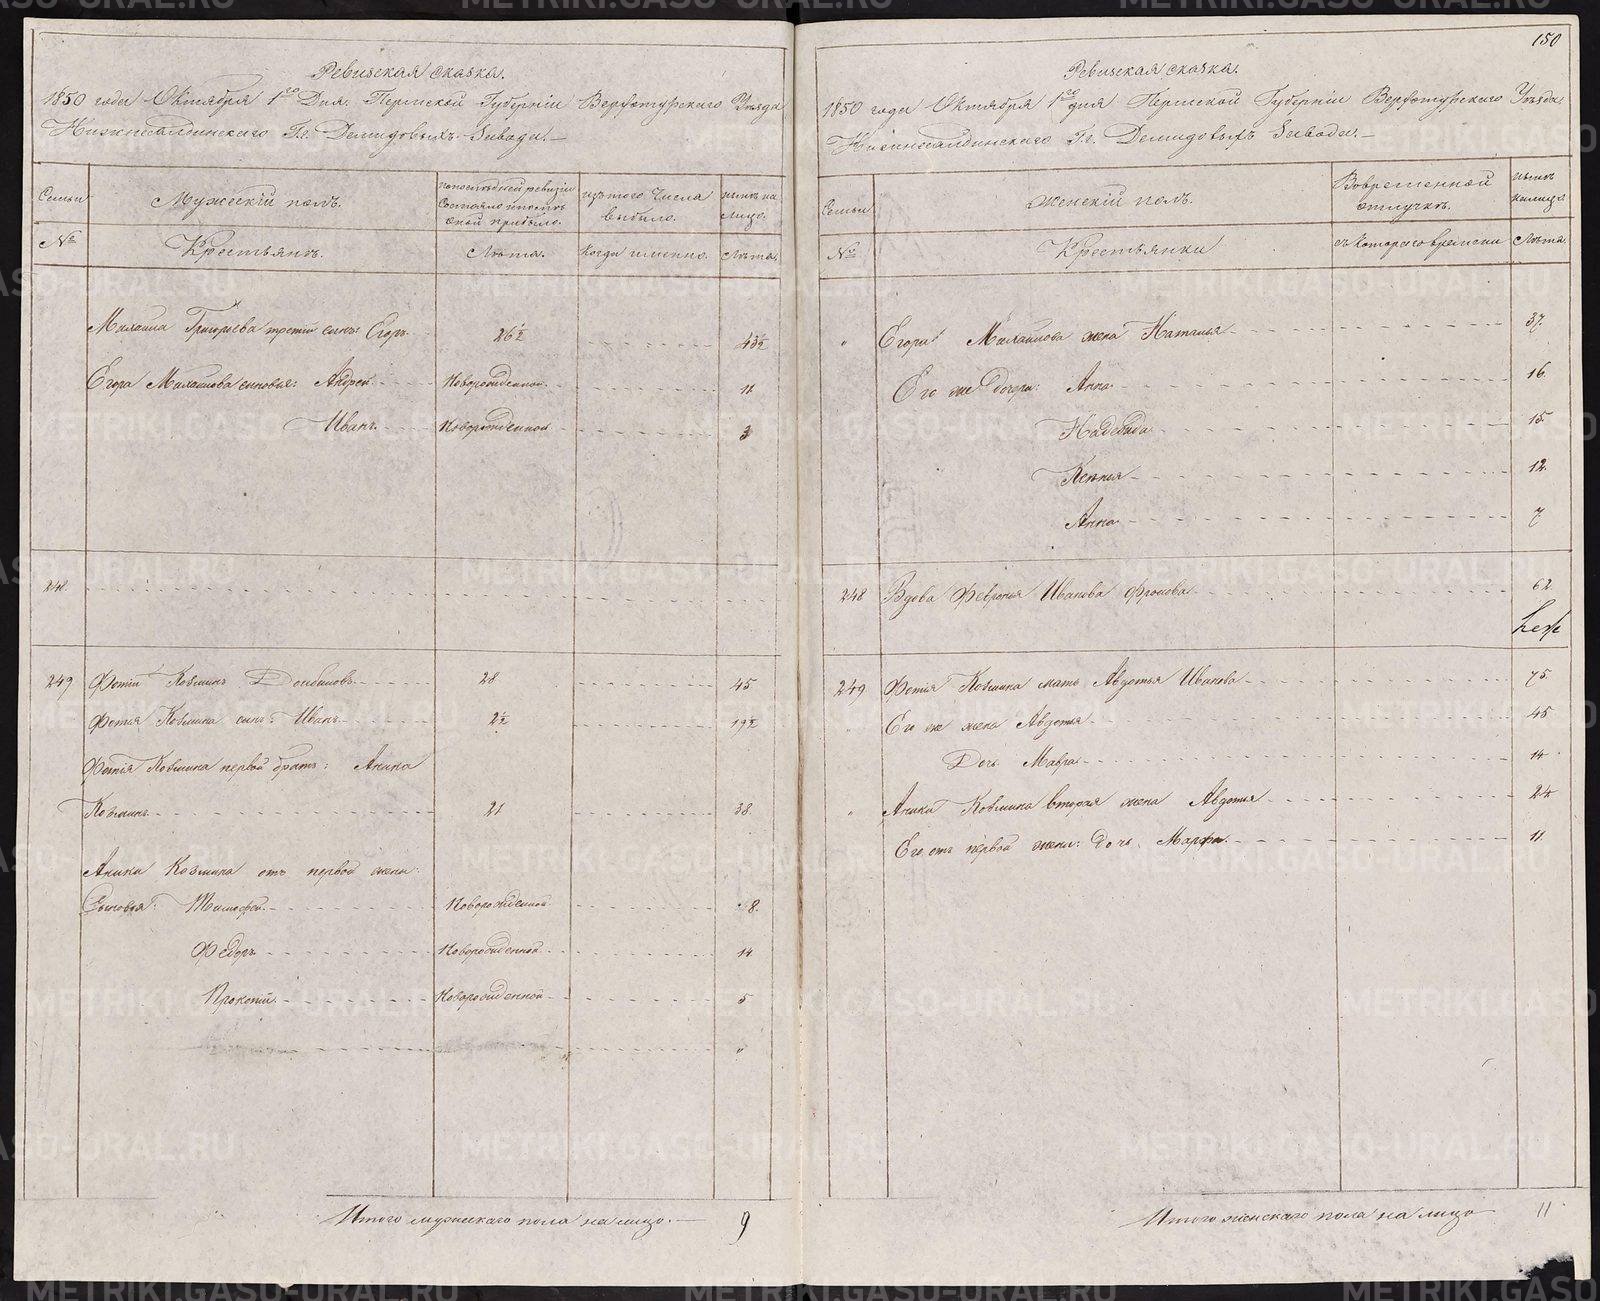 Ревизская сказка.
1850 года Октября 1го Дня. Пермской Губернии Верхотурского Уезда
Нижнесалдинского Гг. Демидовыхъ Завода.
Семьи
Мужескій полъ.
по последней ревизіи
состояло и после
оной прибыло.
изъ того числа
выбыло.
ныне на
лицо.
№
Крестьянъ.
Лета.
Когда именно.
Лета.
Григорьева третій сынъ: Егоръ 26½ 43½
Егора сыновья: Андрей Новорожденной 11
Иванъ Новорожденной 3
248
249 Фотій Козминъ 28 45
Фотія Козмина сынъ: Иванъ 2½ 19½
Фотія Козмина первой братъ: Аника
Козминъ 21 38.
Аника Козмина отъ первой жены
Сыновья: Тимофей Новорожденной 8.
Федоръ Новорожденной 14
Прокопій Новорожденной 5
Итого мужескаго пола на лицо. 9
150
Ревизская сказка.
1850 года Октября 1го дня Пермской Губерніи Верхотурского Уезда
Нижнесалдинского Гг. Демидовыхъ Завода.
Семьи
Женскій полъ.
Во временной
отлучке.
ныне
на лицо.
№
Крестьянки
съ которого времени
Лета.
Егора жена Наталья 37.
Его же дочери: Анна 16.
Надежда 15.
Ксенья 12.
Анна 7
248 Вдова Февронья Иванова 62.
249 Фотія Козмина мать Авдотья Иванова 75.
Его же жена Авдотья 45
Дочь Мавра 14
Аники Козмина вторая жена Авдотья 24
Его отъ первой жены: дочь Марфа. 11.
Итого женскаго пола на лицо 11
METRIKI.GASO-URAL.RU